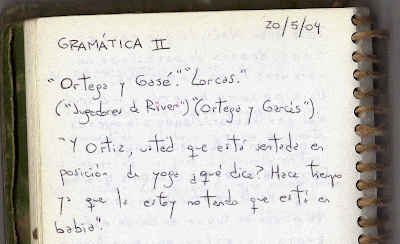 20/5/04
GRAMÁTICA II
"Ortega y Gasé." "Lorcas."
("Jugadores de River") "(Ortega y Garcés")
"Y Ortiz, usted que está sentada en
posición de yoga ¿qué dice? Hace tiempo
ya que la estoy notando que está en
babia".